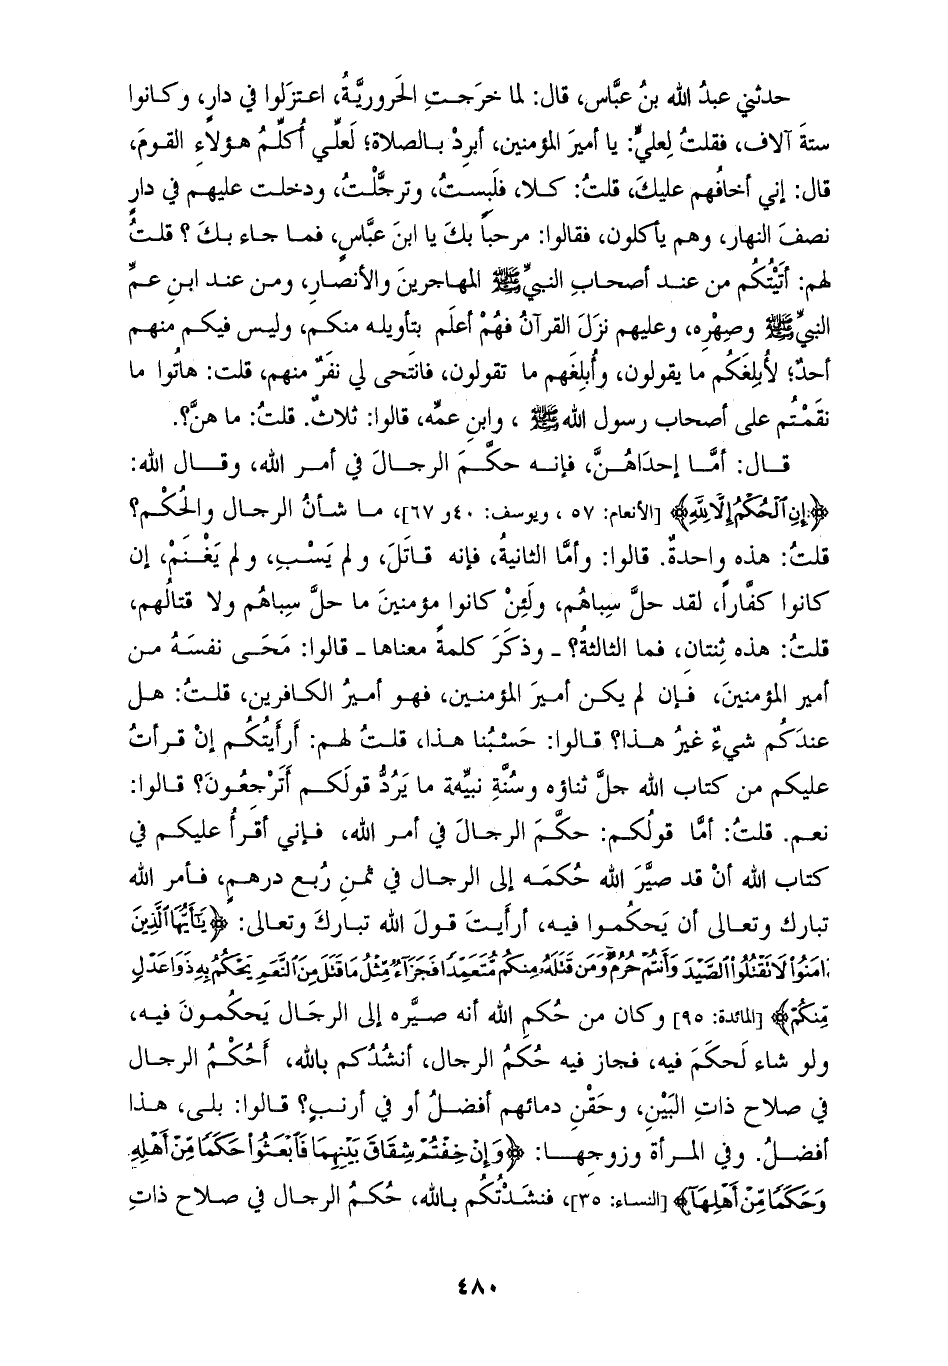 حدثني عبدُ الله بنُ عبَّاس، قال: لما خرَجتِ الحَروريَّةُ، اعتزَلوا في دارٍ، وكانوا
ستةَ آلاف، فقلتُ لِعليٍّ: يا أميرَ المؤمنين، أبرِدْ بالصلاة؛ لَعلِّي أُكلِّمُ هؤلاءِ القومَ،
قال: إني أخافُهم عليكَ، قلتُ: كلا، فلَبِستُ، وترجَّلْتُ، ودخلت عليهم في دارٍ
نصفَ النهار، وهم يأكلون، فقالوا: مرحباً بكَ يا ابنَ عبَّاسٍ، فما جاء بكَ؟ قلتُ
لهم: أَتَيْتُكُم من عند أصحابِ النبيِّ ﷺ المهاجرينَ والأنصارِ، ومن عند ابنِ عمِّ
النبيِّ ﷺ وصِهْرِه، وعليهم نزَلَ القرآنُ فهُمْ أعلَم بتأويله منكم، وليس فيكم منهم
أحدٌ؛ لأُبلِغَكُم ما يقولون، وأُبلِغَهم ما تقولون، فانتحى لي نفَرٌ منهم، قلت: هاتُوا ما
نقَمْتُم على أصحاب رسول الله ﷺ، وابنِ عمِّه، قالوا: ثلاثٌ. قلتُ: ما هنَّ؟.
قال: أمَّا إحدَاهُنَّ، فإنه حكَّمَ الرجالَ في أمر الله، وقال الله:
﴿إِنِ ٱلْحُكْمُ إِلَّا لِلَّهِ﴾ [الأنعام: ٥٧، ويوسف: ٤٠ و ٦٧]، ما شأنُ الرجال والحُكْم؟
قلتُ: هذه واحدةٌ. قالوا: وأمَّا الثانيةُ، فإنه قاتَلَ، ولم يَسْبِ، ولم يَغْنَمْ، إن
كانوا كفَّاراً، لقد حلَّ سِباهُم، ولَئِنْ كانوا مؤمنينَ ما حلَّ سِباهُم ولا قتالُهم،
قلتُ: هذه ثِنتان، فما الثالثةُ؟ ـ وذكَرَ كلمةً معناها ـ قالوا: مَحَى نفسَهُ من
أمير المؤمنينَ، فإن لم يكن أميرَ المؤمنين، فهو أميرُ الكافرين، قلتُ: هل
عندَكُم شيءٌ غيرُ هذا؟ قالوا: حَسْبُنا هذا، قلتُ لهم: أَرأَيتُكُم إنْ قرأتُ
عليكم من كتاب الله جلَّ ثناؤه وسُنَّةِ نبيِّه ما يَرُدُّ قولَكم أَتَرْجِعُونَ؟ قالوا:
نعم. قلتُ: أمَّا قولُكم: حكَّمَ الرجالَ في أمر الله، فإني أقرأُ عليكم في
كتاب الله أنْ قد صيَّرَ الله حُكمَه إلى الرجال في ثمنِ رُبع درهمٍ، فأمر الله
تبارك وتعالى أن يَحكُموا فيه، أرأيتَ قولَ الله تباركَ وتعالى: ﴿يَٰٓأَيُّهَا ٱلَّذِينَ
ءَامَنُوا۟ لَا تَقْتُلُوا۟ ٱلصَّيْدَ وَأَنتُمْ حُرُمٌ وَمَن قَتَلَهُۥ مِنكُم مُّتَعَمِّدًا فَجَزَآءٌ مِّثْلُ مَا قَتَلَ مِنَ ٱلنَّعَمِ يَحْكُمُ بِهِۦ ذَوَا عَدْلٍ
مِّنكُمْ﴾ [المائدة: ٩٥] وكان من حُكمِ الله أنه صيَّره إلى الرجَال يَحكمونَ فيه،
ولو شاء لَحكَمَ فيه، فجاز فيه حُكمُ الرجال، أنشُدُكم بالله، أَحُكْمُ الرجال
في صلاح ذاتِ البَيْنِ، وحَقْنِ دمائهم أفضلُ أو في أرنبٍ؟ قالوا: بلى، هذا
أفضلُ. وفي المرأة وزوجها: ﴿وَإِنْ خِفْتُمْ شِقَاقَ بَيْنِهِمَا فَٱبْعَثُوا۟ حَكَمًا مِّنْ أَهْلِهِۦ
وَحَكَمًا مِّنْ أَهْلِهَآ﴾ [النساء: ٣٥]، فنشَدْتُكُم بالله، حُكمُ الرجال في صلاح ذاتِ
٤٨٠